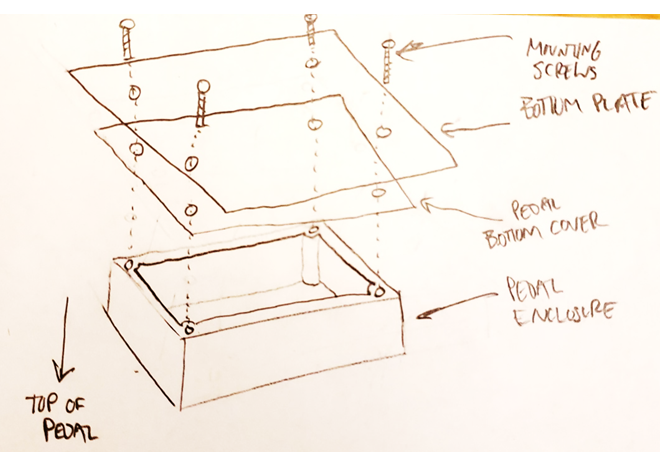 MOUNTING
SCREWS
BOTTOM PLATE
PEDAL
BOTTOM COVER
PEDAL
ENCLOSURE
TOP OF
PEDAL